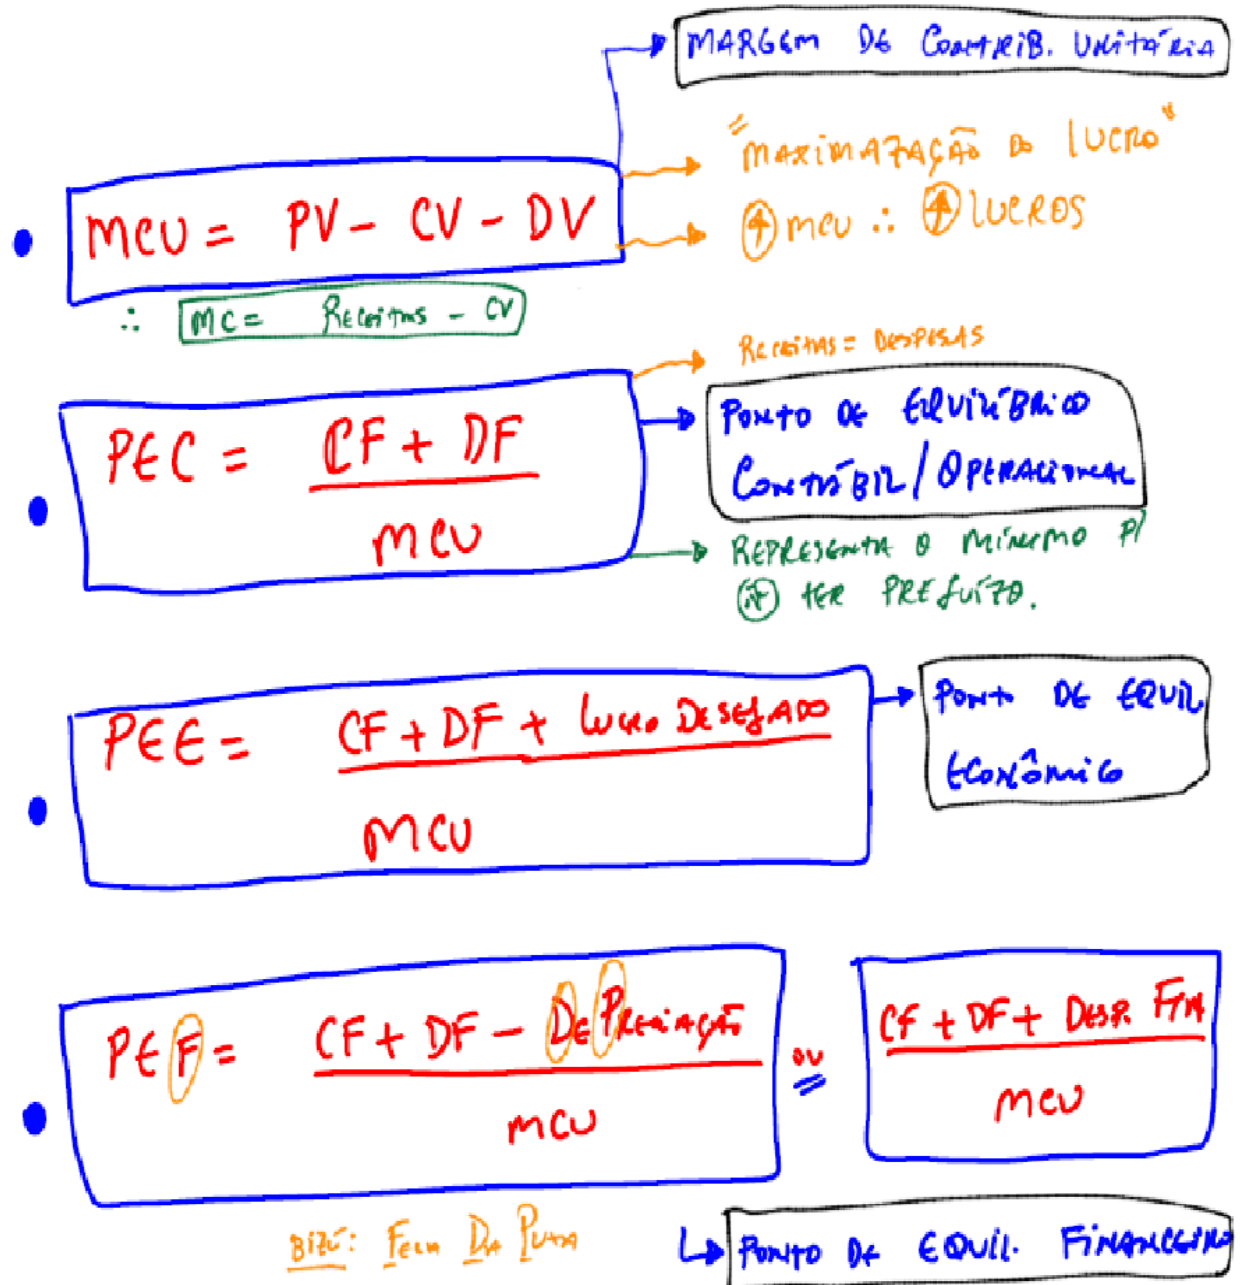 MARGEM DE CONTRIB. UNITÁRIA
"MAXIMAZAÇÃO DO LUCRO"
MCU = PV - CV - DV
↑ MCU ∴ ↑ LUCROS
∴ MC = RECEITAS - CV
RECEITAS = DESPESAS
PEC = CF + DF
MCU
PONTO DE EQUILÍBRIO
CONTÁBIL / OPERACIONAL
REPRESENTA O MÍNIMO P/
TER PREJUÍZO.
PEE = CF + DF + LUCRO DESEJADO
MCU
PONTO DE EQUIL
ECONÔMICO
PEF = CF + DF - DEPRECIAÇÃO
MCU
OU
CF + DF + DESP. FIN
MCU
BIZÚ: DA PUTA
PONTO DE EQUIL. FINANCEIRO